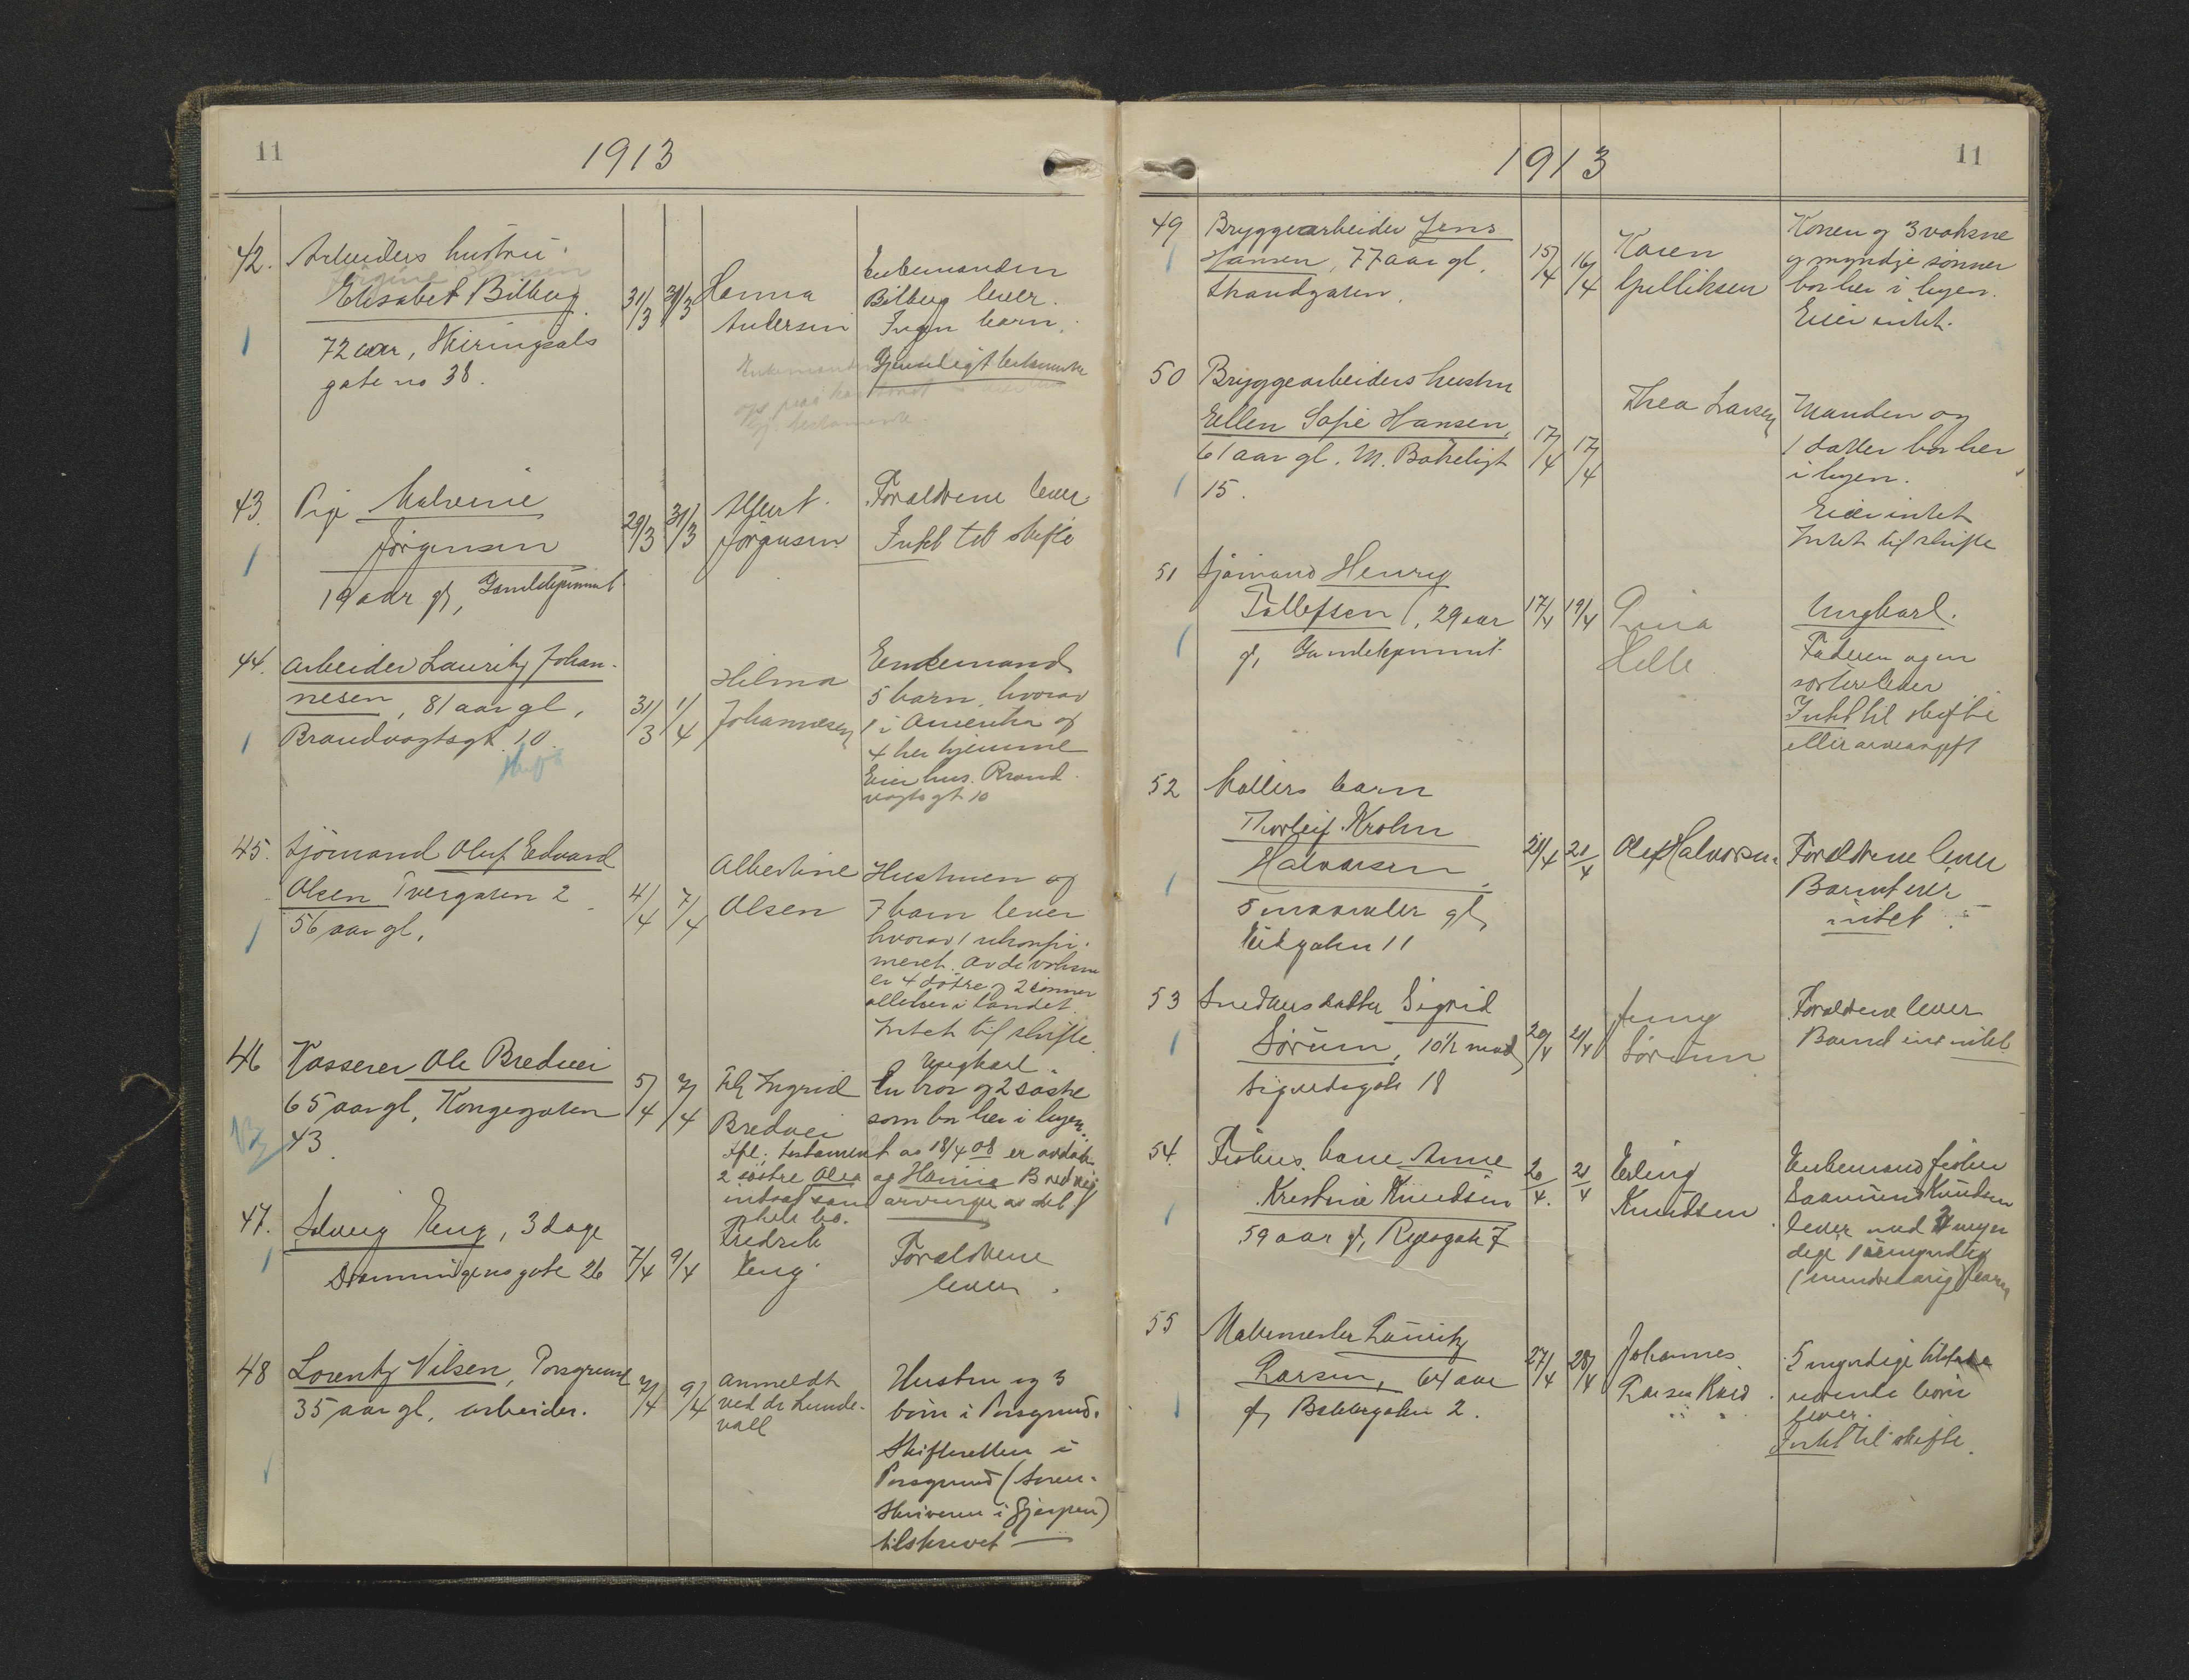 11
1913
42. Arbeiders hustru
Elisabet Bilberg
72 aar, Skiringsals
gate no 38.
31/3 31/3
Hanna
Andersen
Enkemanden
Bilberg lever.
Ingen barn.
Gjensidigt testamente
43. Pige Malvine
Jörgensen
19 aar gl,
29/3 31/3
Jörgensen
Forældrene lever
Intet til skifte
44. Arbeider Lauritz Johan-
nesen, 81 aar gl,
Brandvagtsgt. 10.
31/3 1/4
Hilma
Johannesen
Enkemand
5 barn, hvorav
1 i Amerika og
4 her hjemme
Eier hus. Brand-
vagtsgt 10
45. Sjömand Oluf Edvard
Olsen Tvergaten 2
56 aar gl,
4/4 7/4
Albertine
Olsen
Hustruen og
7 barn lever
hvorav 1 ukonfir-
meret. Av de voksne
er 4 døtre og 2 sönner
alle her i landet.
Intet til skifte.
46 Kasserer Ole Bredvei
65 aar gl, Kongegaten
43.
5/4 7/4
Frk Ingrid
Bredvei
Ungkarl.
En bror og 2 søstre
som bor her i byen.
Ifl. testament av 18/4 08 er avdøde
2 søstre Olea og Hanna Bredvei
indsat som arvinger av det
hele bo.
47. Solveig Eeng, 3 dage
Dronningensgate 26
7/4 9/4
Fredrik
Eeng
Forældrene
lever.
48 Lorentz Nilsen, Porsgrund
35 aar gl, arbeider.
7/4 9/4
Anmeldt
ved dr Lunde-
vall
Hustru og 3
børn i Porsgrund.
Skifteretten i
Porsgrund (Soren-
skriveren i Gjerpen)
tilskrevet
1913
11
49 Bryggearbeider Jens
Hansen, 77 aar gl,
Strandgaten.
15/4 16/4
Karen
Gulliksen
Konen og 3 voksne
og myndige sønner
bor her i byen.
Eier intet.
50 Bryggearbeiders hustru
Ellen Sofie Hansen,
61 aar gl. M. Bøkeligt
15.
17/4 17/4
Thea Larsen
Manden og
1 datter bor her
i byen.
Eier intet
Intet til skifte
51 Sjømand Henry
Tollefsen, 29 aar
gl,
17/4 19/4
Helle
Ungkarl.
Faderen og en
søster lever
Intet til skifte
eller arveavgift
52 Møllers barn
Thorleif Krohn
Halvorsen
5 maaneder gl,
Eikgaten 11
21/4
Olaf Halvorsen
Forældrene lever
Barnet eier
intet
53 Snedkers datter Sigrid
Sørum, 10½ mnd,
Sigurdsgate 18
20/4 21/4
Jenny
Sörum
Forældrene lever
Barnet eier intet.
54. Fiskers kone Anne
Kristine Knudsen
59 aar gl,
20/4. 21/4
Erling
Knudsen
Enkemand fisker
Knudsen
lever med 3 myn
dige 1 umyndig
(mindreaarig) barn
55 Malermester Lauritz
Larsen, 64 aar
gl, Bakkegaten 2.
27/4 28/4
Johannes
Larsen
5 myndige tilstede
værende børn
lever.
Intet til skifte.